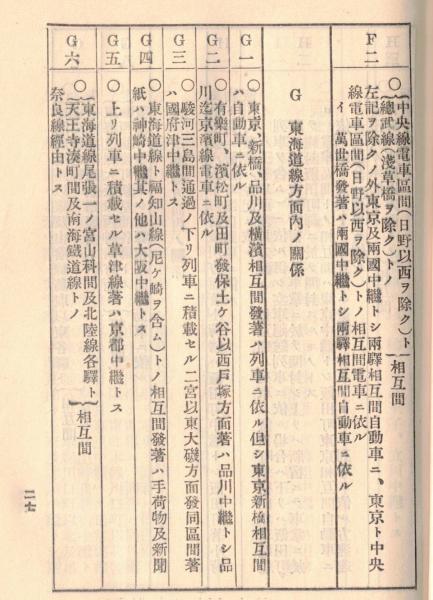 F二
○{中央線電車區間(日野以西ヲ除ク)ト
總武線(淺草橋ヲ除ク)トノ}相互間
左記ヲ除クノ外東京及兩國中繼トシ兩驛相互間自動車ニ、東京ト中央
線電車區間(日野以西ヲ除ク)トノ相互間電車ニ依ル
イ 萬世橋發著ハ兩國中繼トシ兩驛相互間自動車ニ依ル
G 東海道線方面內ノ關係
G一
○東京、新橋、品川及橫濱相互間發著ハ列車ニ依ル但シ東京新橋相互間
ハ自動車ニ依ル
G二
○有樂町、濱松町及田町發保土ケ谷以西戶塚方面著ハ品川中繼トシ品
川迄京濱線電車ニ依ル
G三
○駿河三島間通過ノ下リ列車ニ積載セル二宮以東大磯方面發同區間著
ハ國府津中繼トス
G四
○東海道線ト福知山線(尼ケ崎ヲ含ム)トノ相互間發著ハ手荷物及新聞
紙ハ神崎中繼其ノ他ハ大阪中繼トス
G五
○上リ列車ニ積載セル草津線著ハ京都中繼トス
G六
○{東海道線尾張一ノ宮山科間及北陸線各驛ト
天王寺湊町間及南海鐵道線トノ}相互間
奈良線經由トス
二七